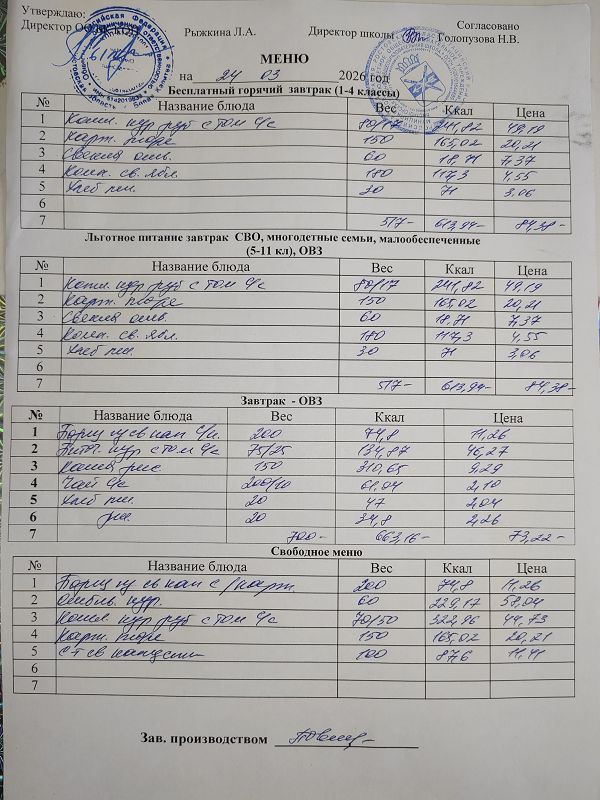 Утверждаю:
Согласовано
Директор ООО Рыжкина Л.А. Директор школы Голопузова Н.В.
МЕНЮ
на 24 03 2026 год
Бесплатный горячий завтрак (1-4 классы)
№ Название блюда Вес Ккал Цена
1 Котл. кур руб с том с/с 80/17 241,82 49,19
2 Карт. пюре 150 165,02 20,21
3 Свекла отв. 60 18,71 7,37
4 Комп. св. ябл. 180 117,3 4,55
5 Хлеб пш. 30 71 3,06
6
7 517- 613,94- 84,38-
Льготное питание завтрак СВО, многодетные семьи, малообеспеченные
(5-11 кл), ОВЗ
№ Название блюда Вес Ккал Цена
1 Котл. кур руб с том с/с 80/17 241,82 49,19
2 Карт. пюре 150 165,02 20,21
3 Свекла отв. 60 18,71 7,37
4 Комп. св. ябл. 180 117,3 4,55
5 Хлеб пш. 30 71 3,06
6
7 517- 613,94- 84,38-
Завтрак - ОВЗ
№ Название блюда Вес Ккал Цена
1 Борщ из св кап 200 74,8 11,26
2 кур с том с/с 75/25 134,87 46,27
3 Каша рис 150 310,65 9,29
4 Чай с/с 200/10 61,04 2,10
5 Хлеб пш. 20 47 2,04
6 рж. 20 34,8 2,26
7 700- 663,16- 73,22-
Свободное меню
№ Название блюда Вес Ккал Цена
1 Борщ из св кап с/карт. 200 74,8 11,26
2 кур. 60 229,17 58,04
3 Котл. кур руб с том с/с 70/50 322,96 44,73
4 Карт. пюре 150 165,02 20,21
5 С-т св капусты 100 87,6 11,41
6
7
Зав. производством